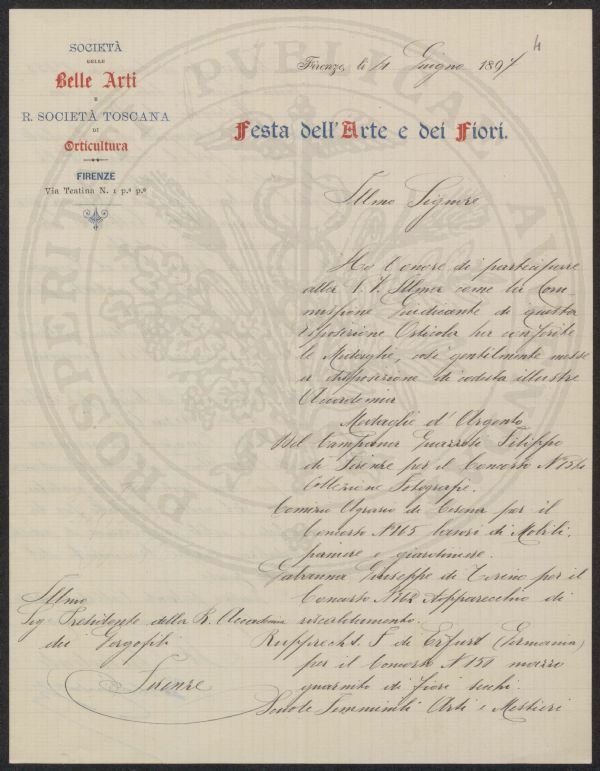 4
SOCIETÀ
DELLE
Belle Arti
E
R. SOCIETÀ TOSCANA
DI
Orticultura
FIRENZE
Via Teatina N. 1 p.º p.º
Firenze, li 11 Giugno 1897
Festa dell'Arte e dei Fiori.
Illmo Signore
Ho l'onore di partecipare
alla S. V. Illma come la Com
missione Giudicante di questa
Esposizione Orticola ha conferite
le Medaglie, così gentilmente messe
a disposizione di codesta illustre
Accademia
Medaglie d'Argento
Del Campana Guarzoli Filippo
di Firenze per il Concorso N.
Collezione Fotografie.
Comizio Agrario di Cesena per il
Concorso N 165 lavori di Mobili,
paniere e giardiniere.
Giuseppe di Torino per il
Concorso N 162 Apparecchio di
riscaldamento.
Rupprecht. F di Erfurt (Germania)
per il Concorso N 151 mazzo
guarnito di fiori secchi.
Scuole Femminili Arti e Mestieri
Illmo
Sig Presidente della R. Accademia
dei Georgofili
Firenze
PROSPERITATI PUBLICAE AUGENDAE